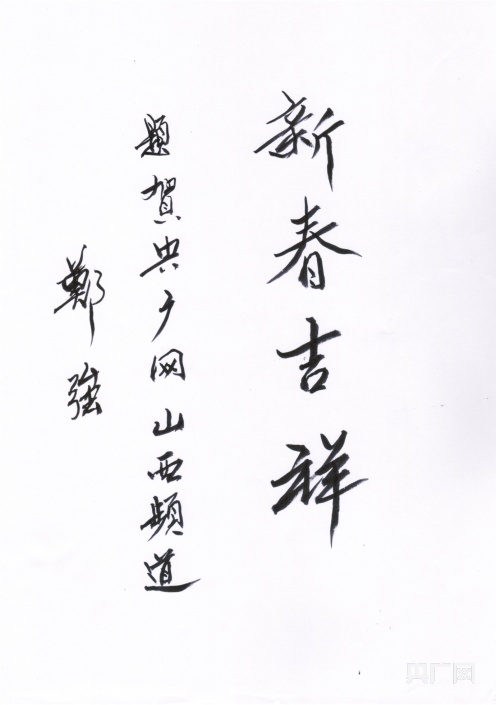 新春吉祥
题贺央广网山西頻道
鄭強
央广网